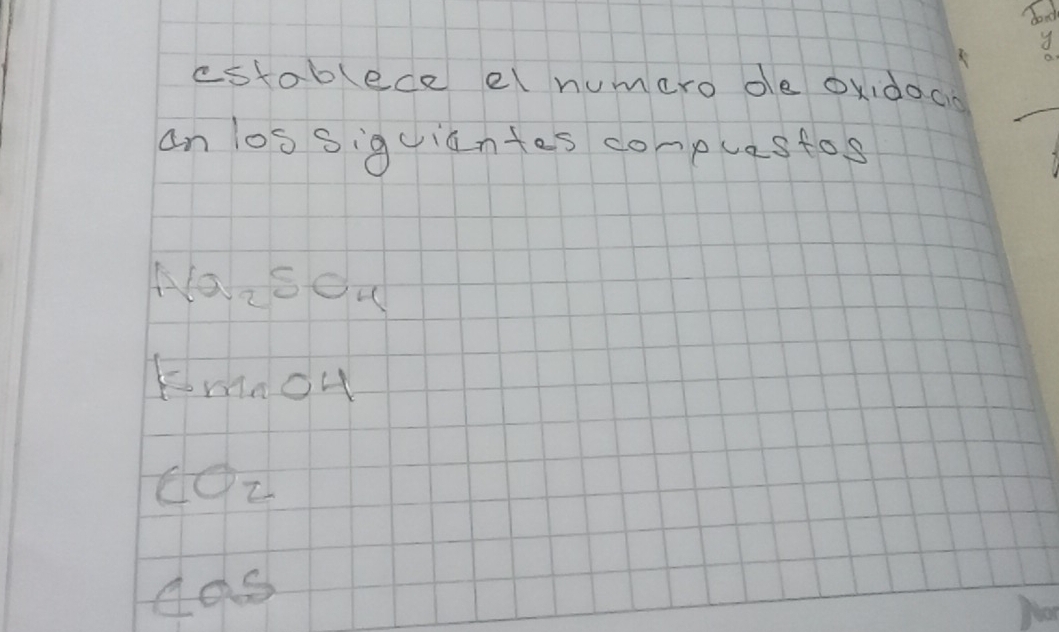 establece el numero de oxidacio
en los siguientes compuestos
Na₂SO₄
KmnO4
CO₂
CaS